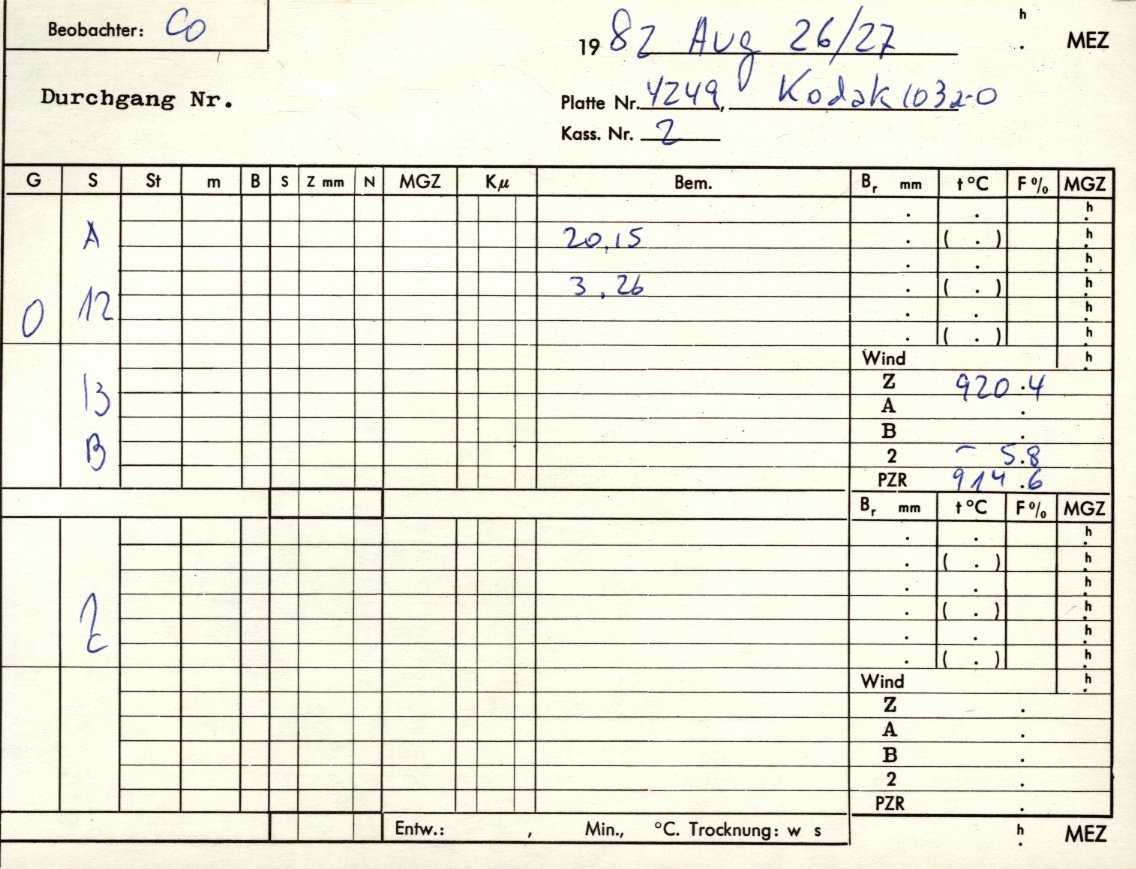 Beobachter: Co
h
1982 Aug 26/27 . MEZ
Durchgang Nr.
Platte Nr. 4249, Kodak 103a-O
Kass. Nr. 2
G S St m B S Z mm N MGZ Kμ Bem. Br mm t °C F % MGZ
. . h.
A 20,15 . ( . ) h.
. . h.
12 3,26 . ( . ) h.
0 . . h.
. ( . ) h.
Wind h.
13 Z 920.4
A .
B .
B 2 – 5.8
PZR 914.6
Br mm t °C F % MGZ
. . h.
. ( . ) h.
. . h.
. ( . ) h.
. . h.
. ( . ) h.
Wind h.
Z .
A .
B .
2 .
PZR .
Entw.: , Min., °C. Trocknung: w s h. MEZ